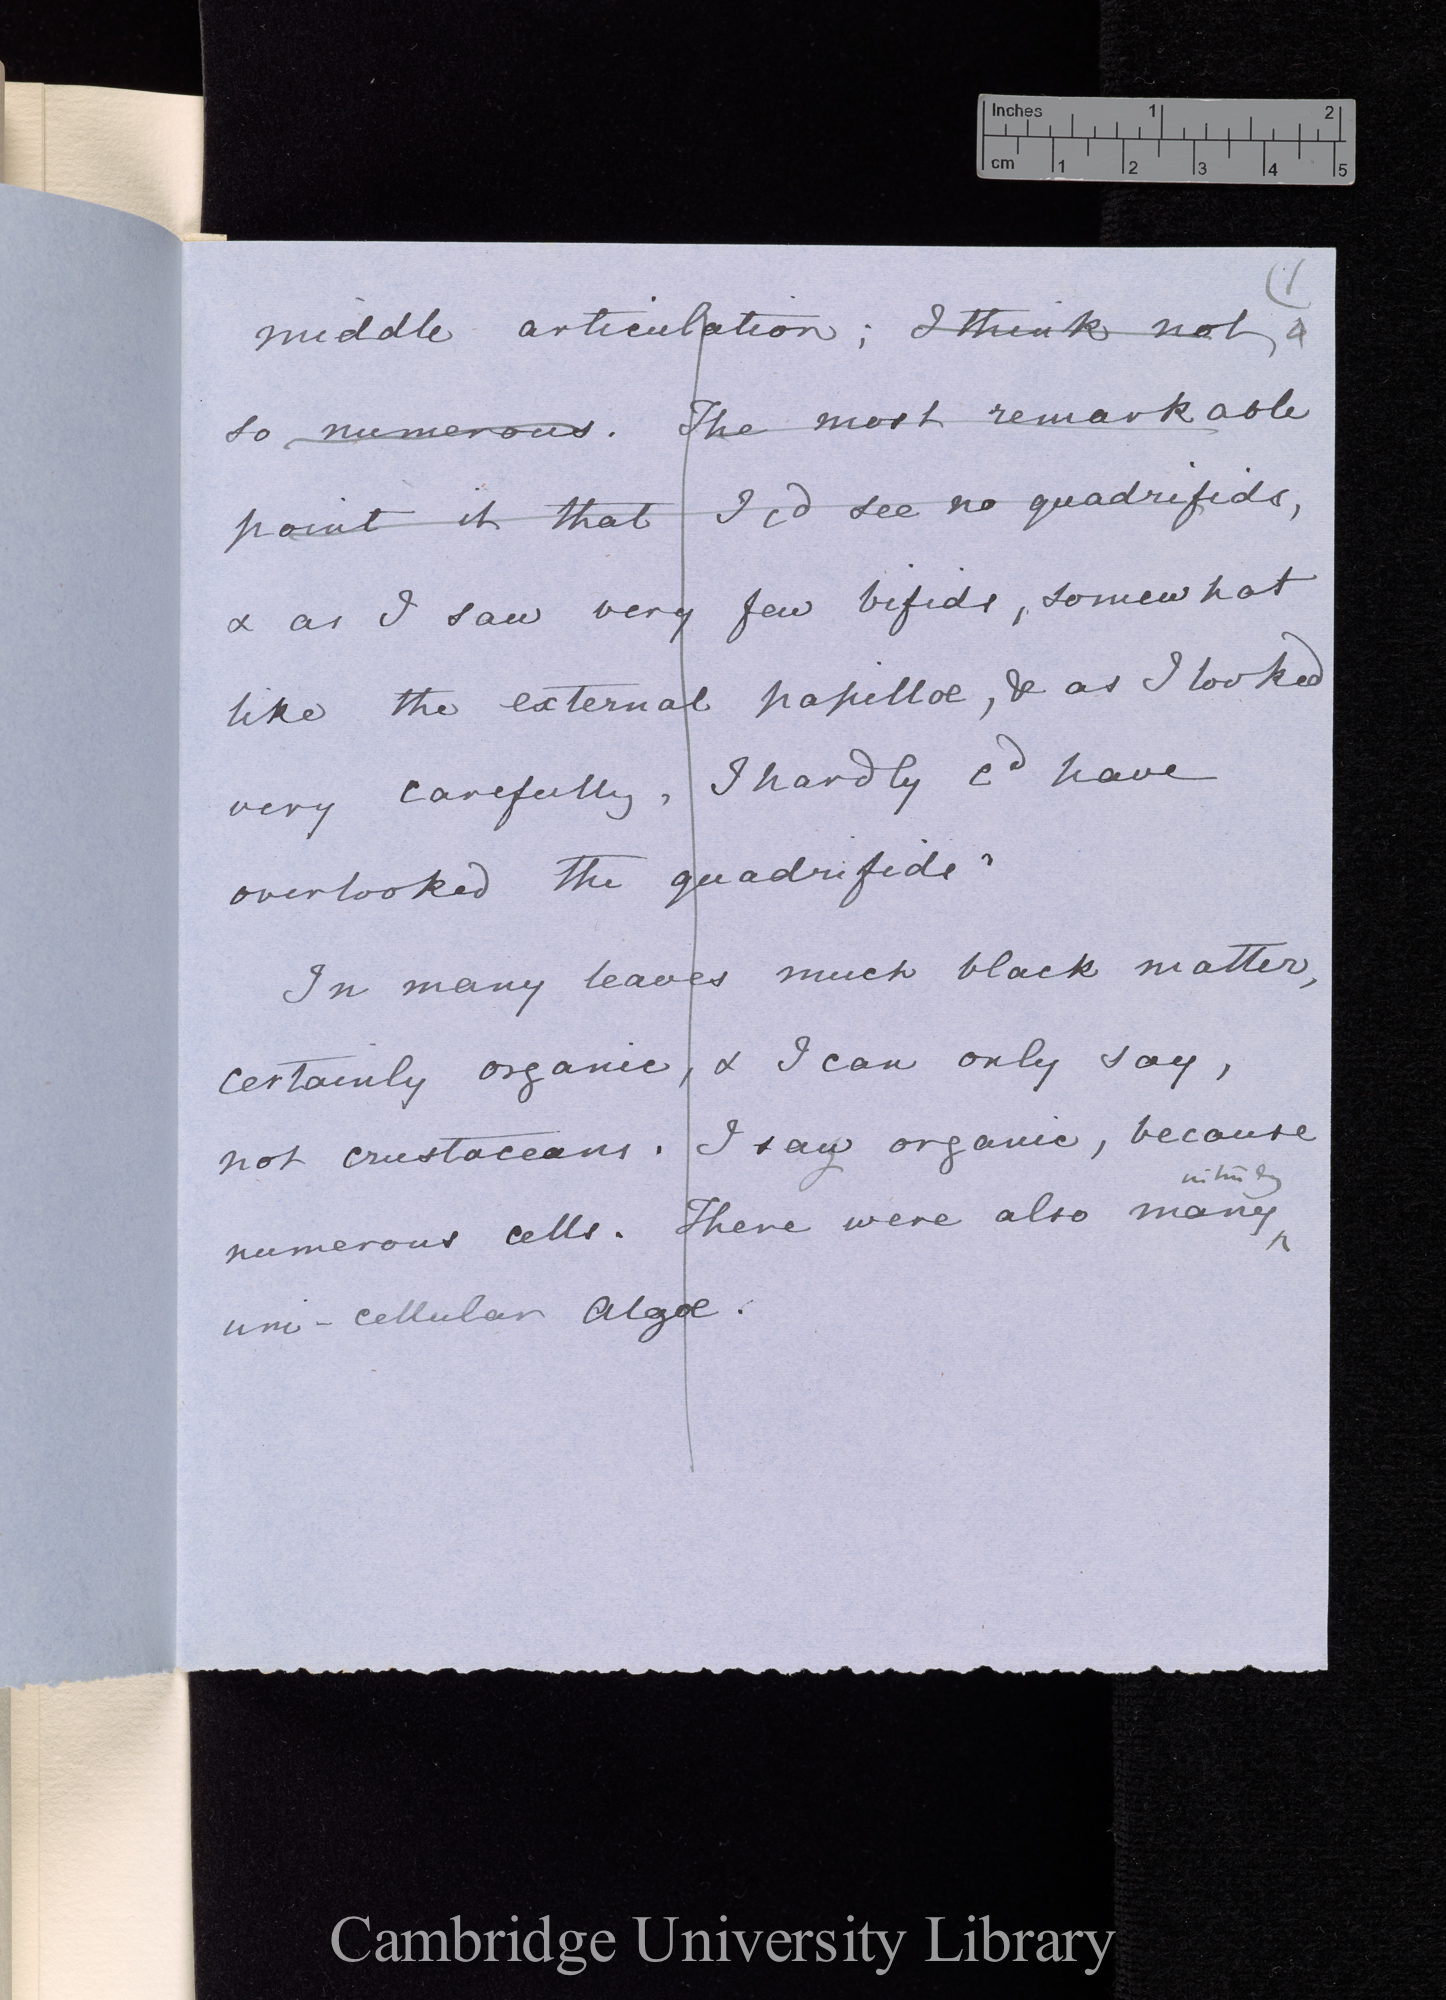 Inches 1 2
cm 1 2 3 4 5
(1
middle articulation; I think not, a
so numerous. The most remarkable
point is that I cd see no quadrifids,
& as I saw very few bifids, somewhat
like the external papillæ, & as I looked
very carefully, I hardly cd have
overlooked the quadrifids?
In many leaves much black matter,
certainly organic, & I can only say,
not crustaceans. I say organic, because
numerous cells. There were also many
uni-cellular Algæ.
Cambridge University Library